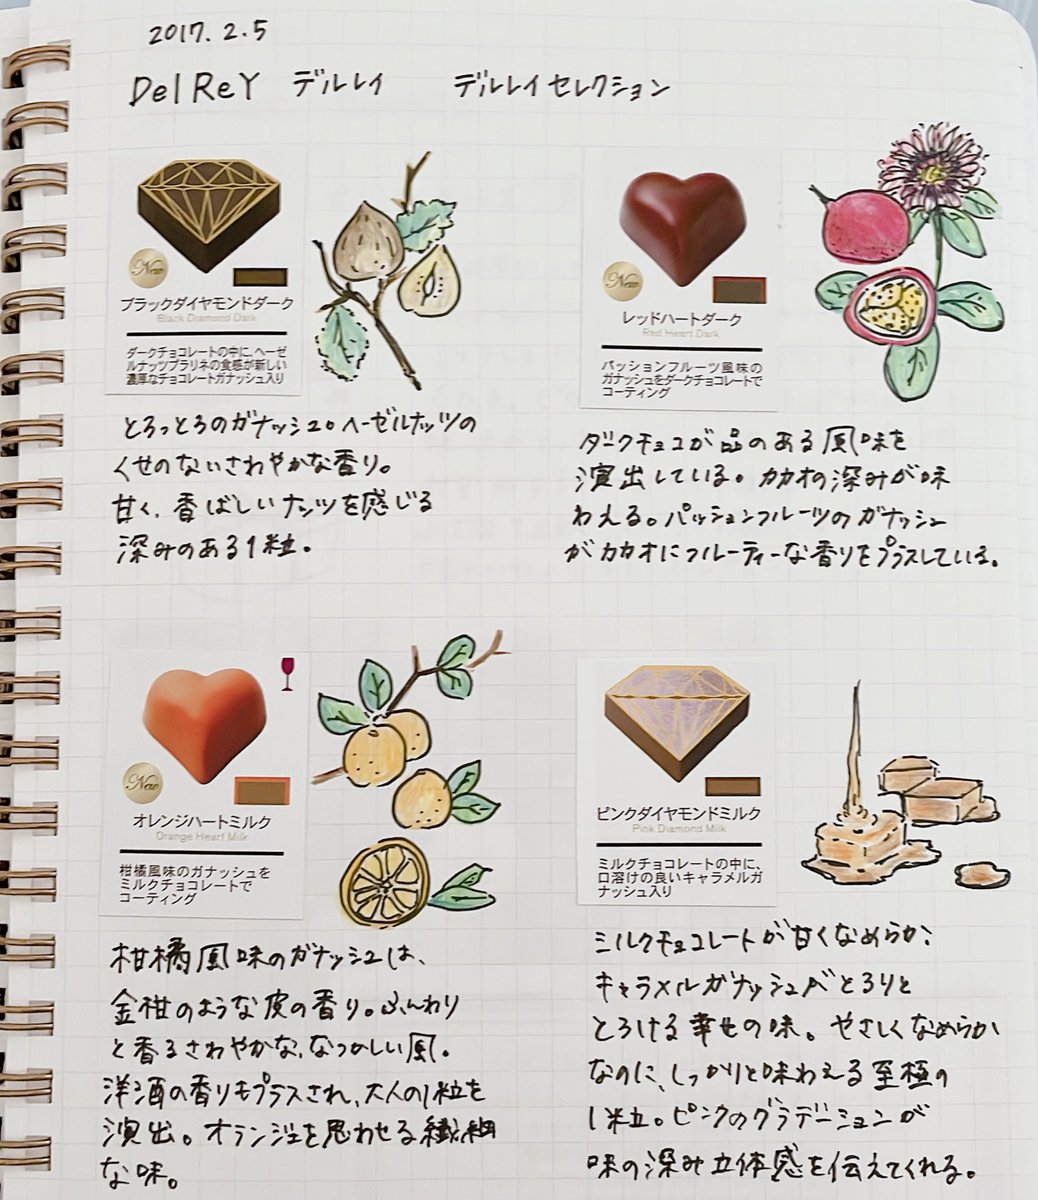 2017.2.5
DelReY デルレイ デルレイセレクション
New
ブラックダイヤモンドダーク
Black Diamond Dark
ダークチョコレートの中に、ヘーゼ
ルナッツプラリネの食感が新しい
濃厚なチョコレートガナッシュ入り
とろっとろのガナッシュ。ヘーゼルナッツの
くせのないさわやかな香り。
甘く、香ばしいナッツを感じる
深みのある1粒。
New
レッドハートダーク
Red Heart Dark
パッションフルーツ風味の
ガナッシュをダークチョコレートで
コーティング
ダークチョコが品のある風味を
演出している。カカオの深みが味
わえる。パッションフルーツのガナッシュ
がカカオにフルーティーな香りをプラスしている。
New
オレンジハートミルク
Orange Heart Milk
柑橘風味のガナッシュを
ミルクチョコレートで
コーティング
柑橘風味のガナッシュは、
金柑のような皮の香り。ふんわり
と香るさわやかな、なつかしい風。
洋酒の香りもプラスされ、大人の1粒を
演出。オランジェを思わせる繊細
な味。
ピンクダイヤモンドミルク
Pink Diamond Milk
ミルクチョコレートの中に、
口溶けの良いキャラメルガ
ナッシュ入り
ミルクチョコレートが甘くなめらか、
キャラメルガナッシュがとろりと
とろける幸せの味。やさしくなめらか
なのに、しっかりと味わえる至極の
1粒。ピンクのグラデーションが
味の深み立体感を伝えてくれる。